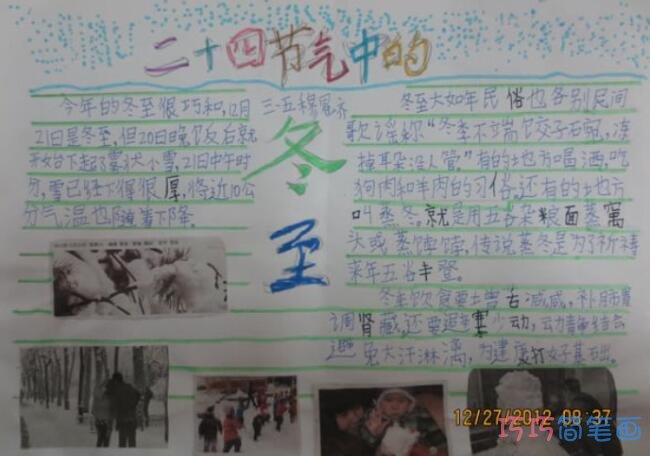 二十四节气中的
冬至
今年的冬至很巧和,12月
21日是冬至,但20日晚饭后就
开始下起了雪,21日中午时
分,雪已经下得很厚,将近10公
分,气温也随着下降。
冬至大如年民俗也各别民间
歌谣称“冬至不端饺子石碗,冻
掉耳朵没人管。”有的地方喝酒,吃
狗肉和羊肉的习俗,还有的地方
叫蒸冬。就是用五谷杂粮面蒸窝
头或蒸饽饽,传说蒸冬是为了祈祷
来年五谷丰登。
冬至饮食要
调肾藏,还要少动,动静结合,
避免大汗淋漓,为健康打好基石出。
12/27/2012 08:37
巧巧简笔画